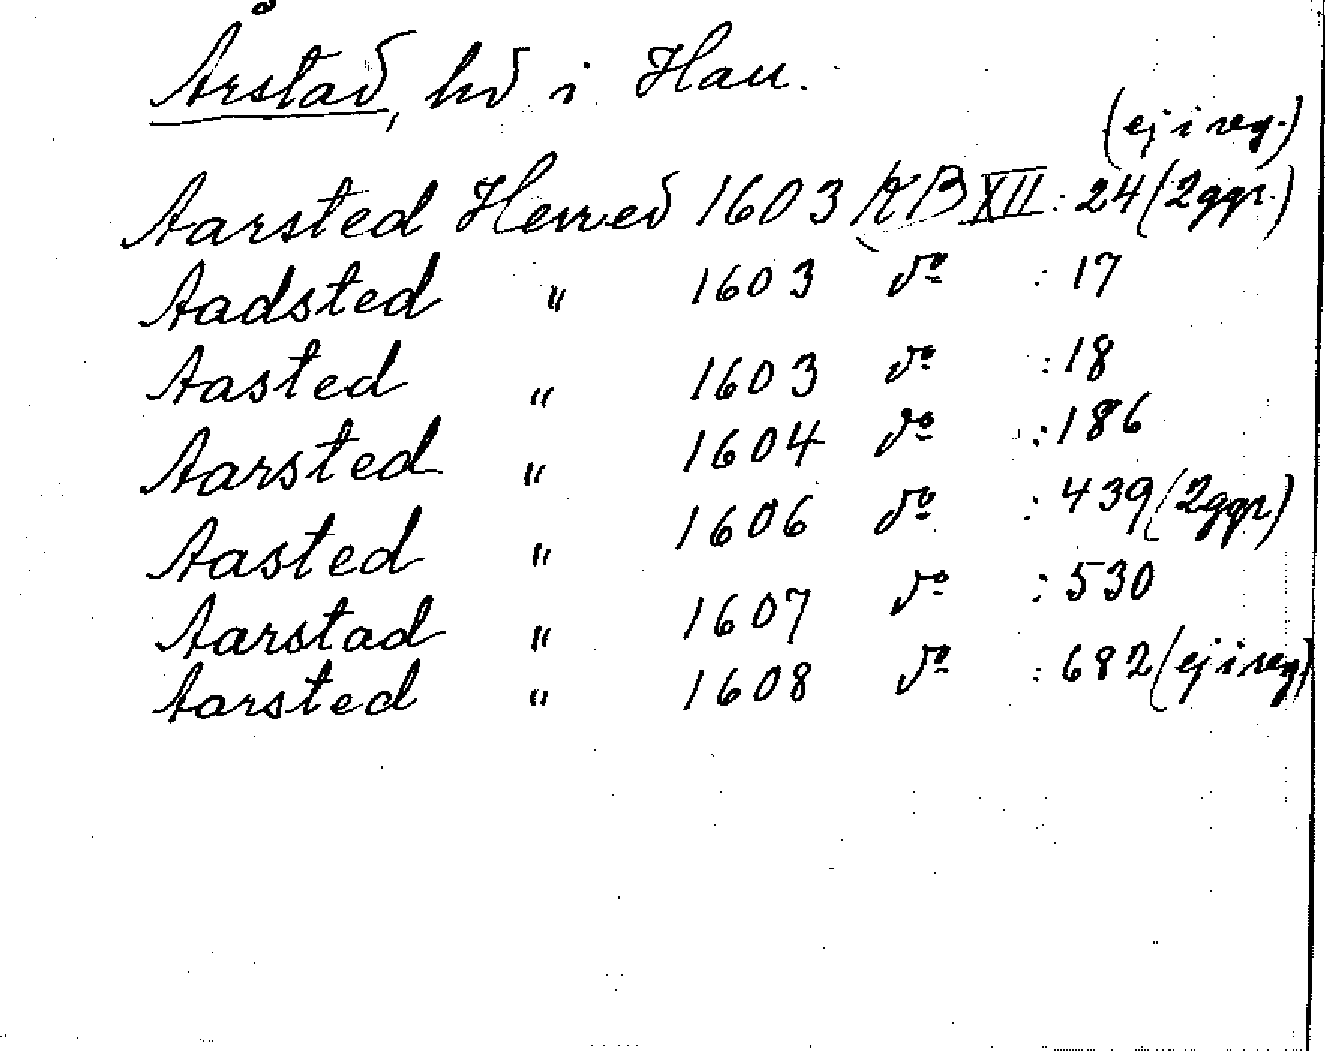 Årstad, hd i Hall.
(ej i reg.)
Aarsted Herred 1603 KB XII : 24 (2ggr.)
Aadsted " 1603 do : 17
Aasted " 1603 do : 18
Aarsted " 1604 do : 186
Aasted " 1606 do : 439 (2ggr)
Aarstad " 1607 do : 530
Aarsted " 1608 do : 682 (ej i reg)